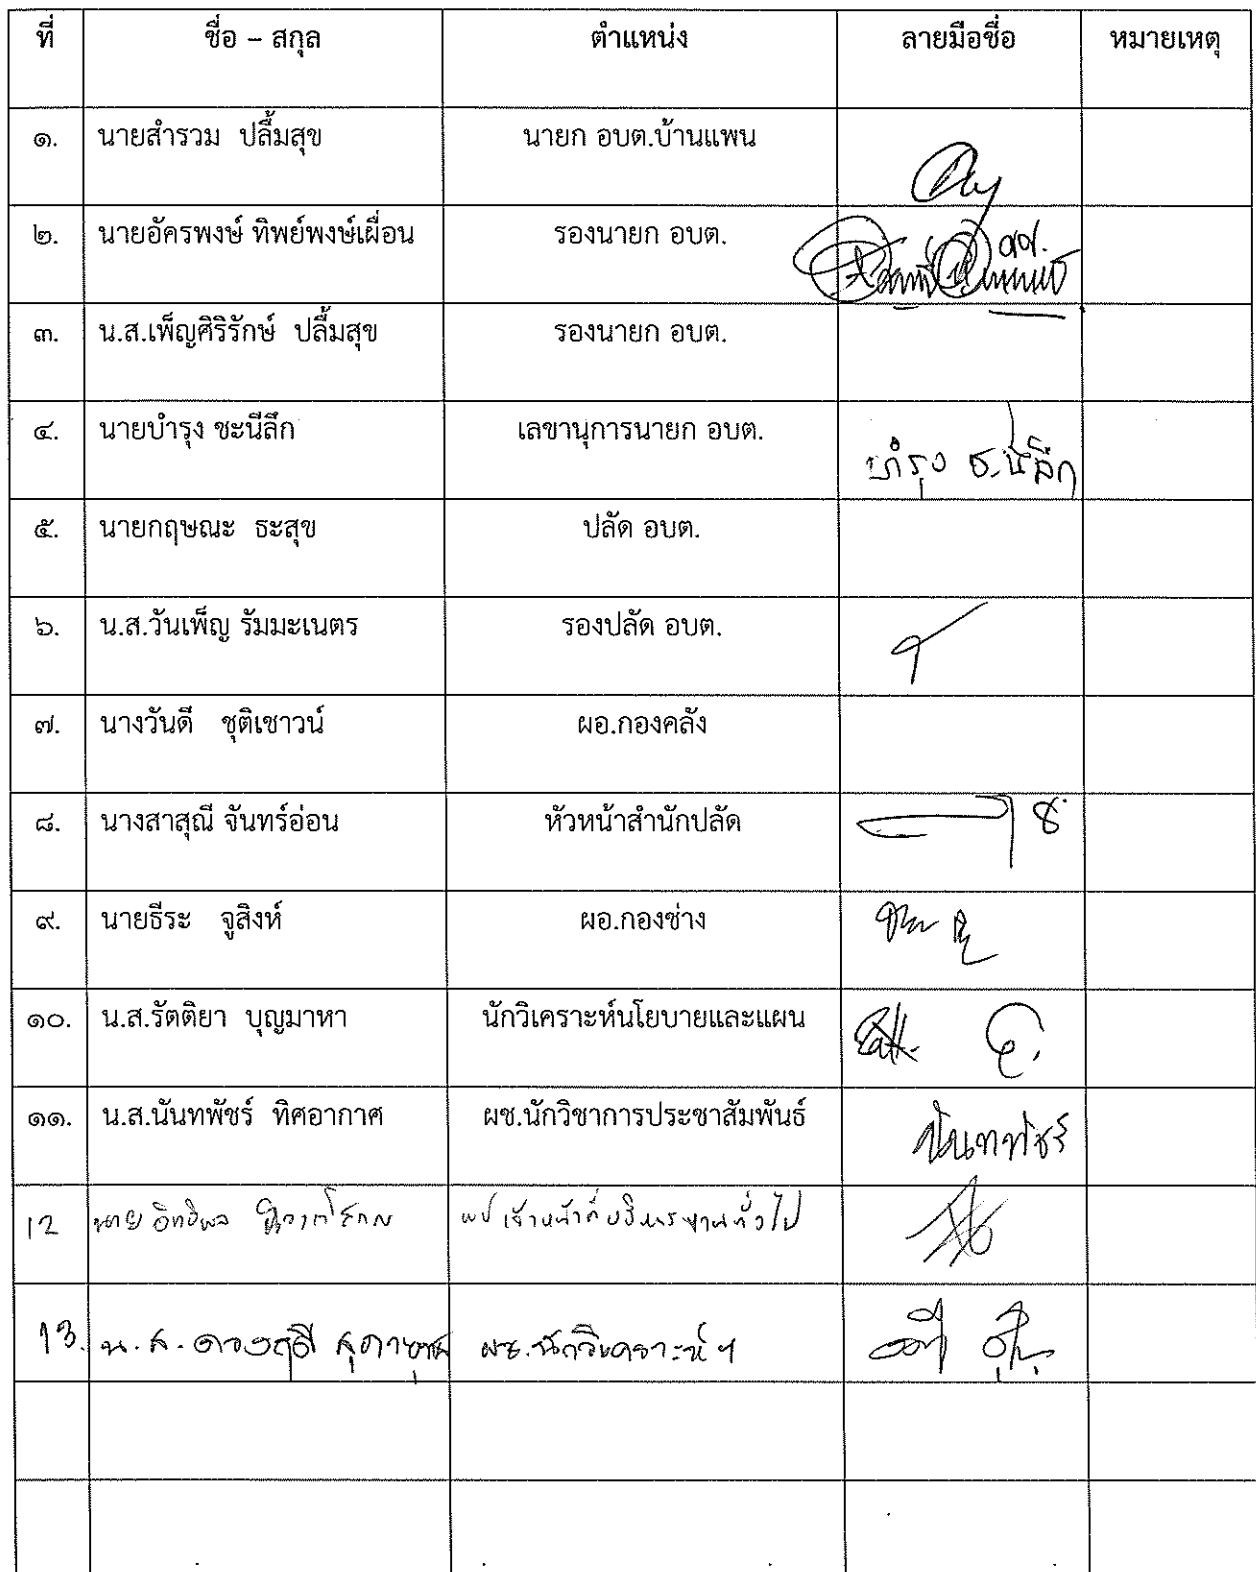 ที่ ชื่อ – สกุล ตำแหน่ง ลายมือชื่อ หมายเหตุ
๑. นายสำรวม ปลื้มสุข นายก อบต.บ้านแพน
๒. นายอัครพงษ์ ทิพย์พงษ์เผื่อน รองนายก อบต.
๓. น.ส.เพ็ญศิริรักษ์ ปลื้มสุข รองนายก อบต.
๔. นายบำรุง ชะนีลึก เลขานุการนายก อบต. บำรุง ชะนีลึก
๕. นายกฤษณะ ธะสุข ปลัด อบต.
๖. น.ส.วันเพ็ญ รัมมะเนตร รองปลัด อบต.
๗. นางวันดี ชุติเชาวน์ ผอ.กองคลัง
๘. นางสาสุณี จันทร์อ่อน หัวหน้าสำนักปลัด
๙. นายธีระ จูสิงห์ ผอ.กองช่าง
๑๐. น.ส.รัตติยา บุญมาหา นักวิเคราะห์นโยบายและแผน
๑๑. น.ส.นันทพัชร์ ทิศอากาศ ผช.นักวิชาการประชาสัมพันธ์ นันทพัชร์
12 นาย อิทธิพล เจ้าหน้าที่บริหารงานทั่วไป
13. น.ส. ดวงฤดี ผช.นักวิเคราะห์ฯ